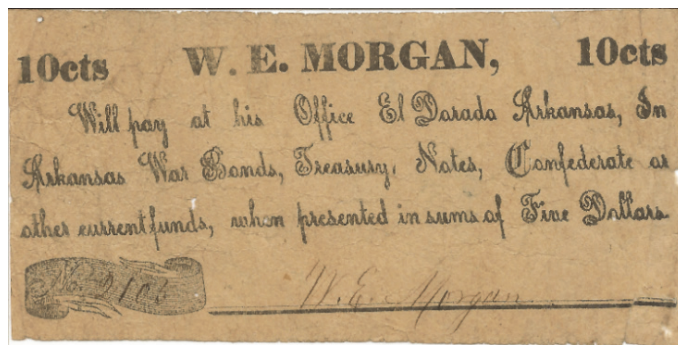 10cts W. E. MORGAN, 10cts
Will pay at his Office El Dorado Arkansas, In
Arkansas War Bonds, Treasury, Notes, Confederate or
other current funds, when presented in sums of Five Dollars
W. E. Morgan